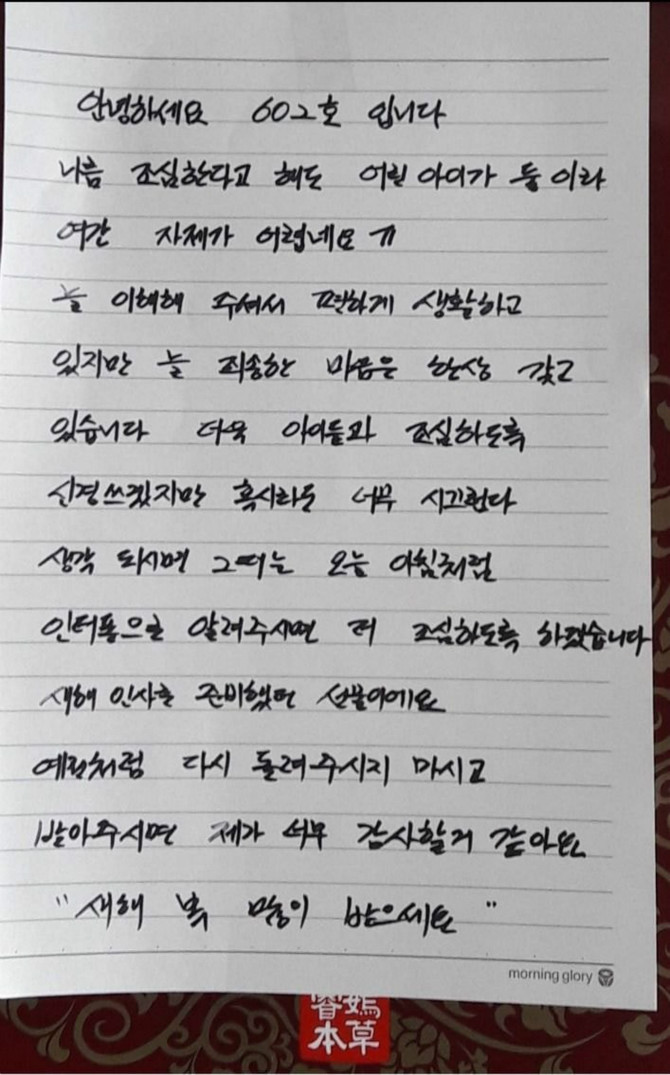 안녕하세요 602호 입니다
나름 조심한다고 해도 어린 아이가 둘 이라
여간 자제가 어렵네요 ㅠ
늘 이해해 주셔서 편하게 생활하고
있지만 늘 죄송한 마음은 항상 갖고
있습니다 더욱 아이들과 조심하도록
신경쓰겠지만 혹시라도 너무 시끄럽다
생각 되시면 그때는 오늘 아침처럼
인터폰으로 알려주시면 더 조심하도록 하겠습니다
새해 인사로 준비했던 선물이에요
예전처럼 다시 돌려주시지 마시고
받아주시면 제가 너무 감사할거 같아요
"새해 복 많이 받으세요"
morning glory
本草